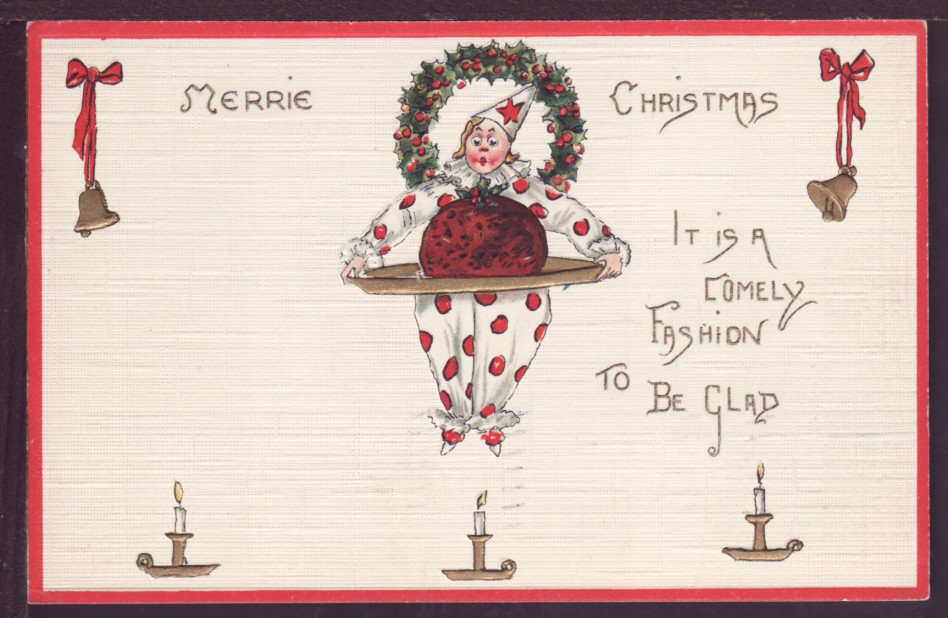 MERRIE CHRISTMAS
IT IS A
COMELY
FASHION
TO BE GLAD